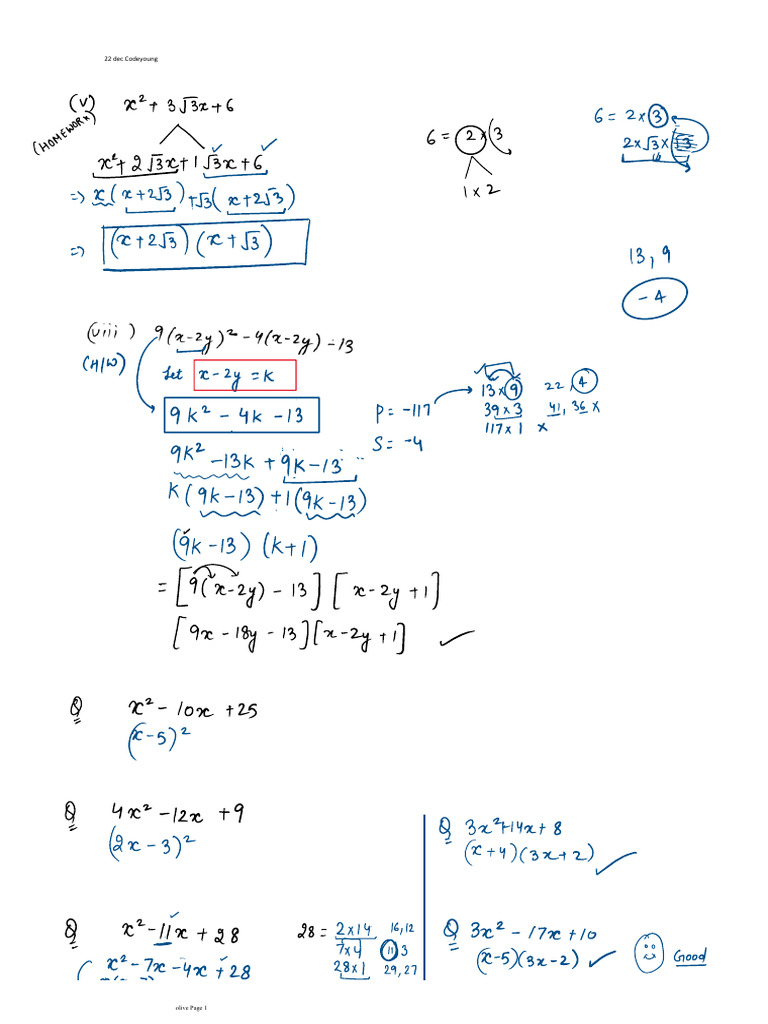 22 dec Codeyoung
(v) x² + 3√3x + 6
(HOMEWORK)
x² + 2√3x + 1√3x + 6
=> x(x+2√3) + √3(x+2√3)
=> (x+2√3)(x+√3)
6 = 2 × 3
1 × 2
6 = 2 × 3
2 × √3 ×
13, 9
-4
(viii) 9(x-2y)² - 4(x-2y) - 13
(H/W)
Let x-2y = k
9k² - 4k - 13
P = -117
S = -4
13 × 9 22, 4
39 × 3 41, 36 ×
117 × 1 ×
9k² - 13k + 9k - 13
k(9k-13) + 1(9k-13)
(9k-13)(k+1)
= [9(x-2y) - 13][x-2y+1]
[9x - 18y - 13][x-2y+1]
Q x² - 10x + 25
(x-5)²
Q 4x² - 12x + 9
(2x-3)²
Q 3x² + 14x + 8
(x+4)(3x+2)
Q x² - 11x + 28
x² - 7x - 4x + 28
28 = 2 × 14 16, 12
7 × 4 11 3
28 × 1 29, 27
Q 3x² - 17x + 10
(x-5)(3x-2)
Good
olive Page 1